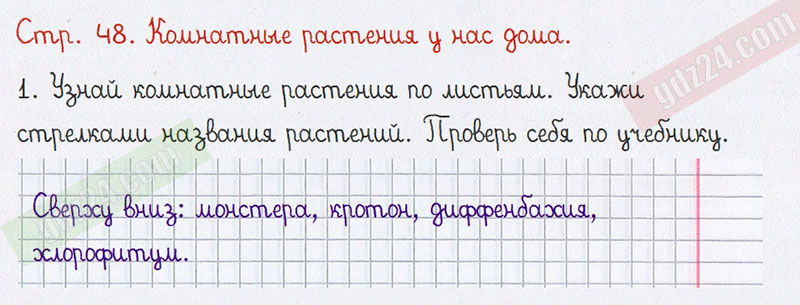 Стр. 48. Комнатные растения у нас дома.
1. Узнай комнатные растения по листьям. Укажи
стрелками названия растений. Проверь себя по учебнику.
Сверху вниз: монстера, кротон, диффенбахия,
хлорофитум.
gdz24.com
gdz24.com